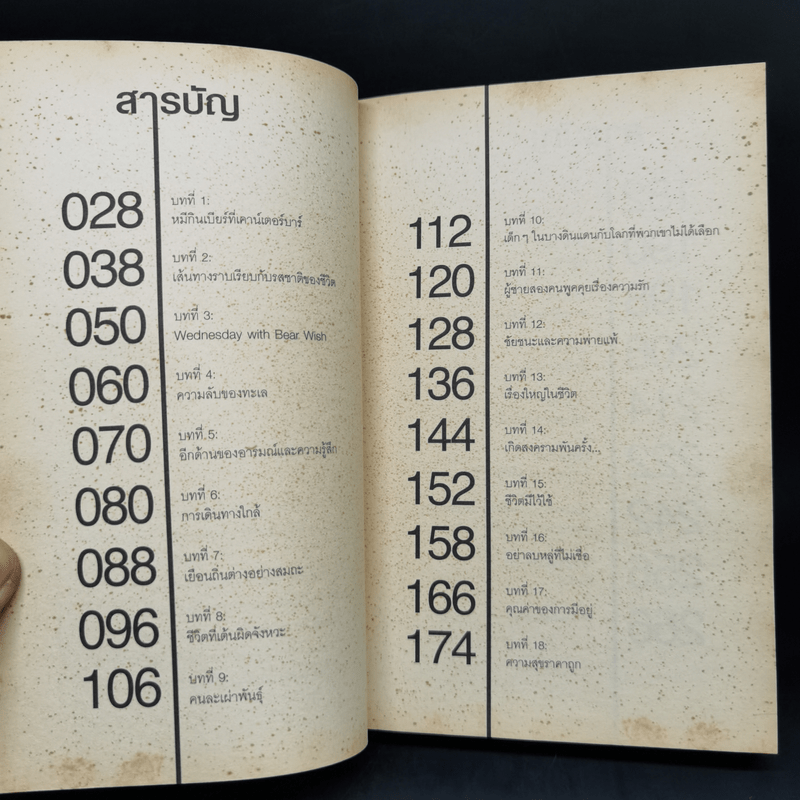 สารบัญ
028
บทที่ 1:
หมีกินเบียร์ที่เคาน์เตอร์บาร์
038
บทที่ 2:
เส้นทางราบเรียบกับรสชาติของชีวิต
050
บทที่ 3:
Wednesday with Bear Wish
060
บทที่ 4:
ความลับของทะเล
070
บทที่ 5:
อีกด้านของอารมณ์และความรู้สึก
080
บทที่ 6:
การเดินทางใกล้
088
บทที่ 7:
เยือนถิ่นต่างอย่างสมถะ
096
บทที่ 8:
ชีวิตที่เต้นผิดจังหวะ
106
บทที่ 9:
คนละเผ่าพันธุ์
112
บทที่ 10:
เด็กๆ ในบางดินแดนกับโลกที่พวกเขาไม่ได้เลือก
120
บทที่ 11:
ผู้ชายสองคนพูดคุยเรื่องความรัก
128
บทที่ 12:
ชัยชนะและความพ่ายแพ้
136
บทที่ 13:
เรื่องใหญ่ในชีวิต
144
บทที่ 14:
เกิดสงครามพันครั้ง...
152
บทที่ 15:
ชีวิตมีไว้ใช้
158
บทที่ 16:
อย่าลบหลู่ที่ไม่เชื่อ
166
บทที่ 17:
คุณค่าของการมีอยู่
174
บทที่ 18:
ความสุขราคาถูก